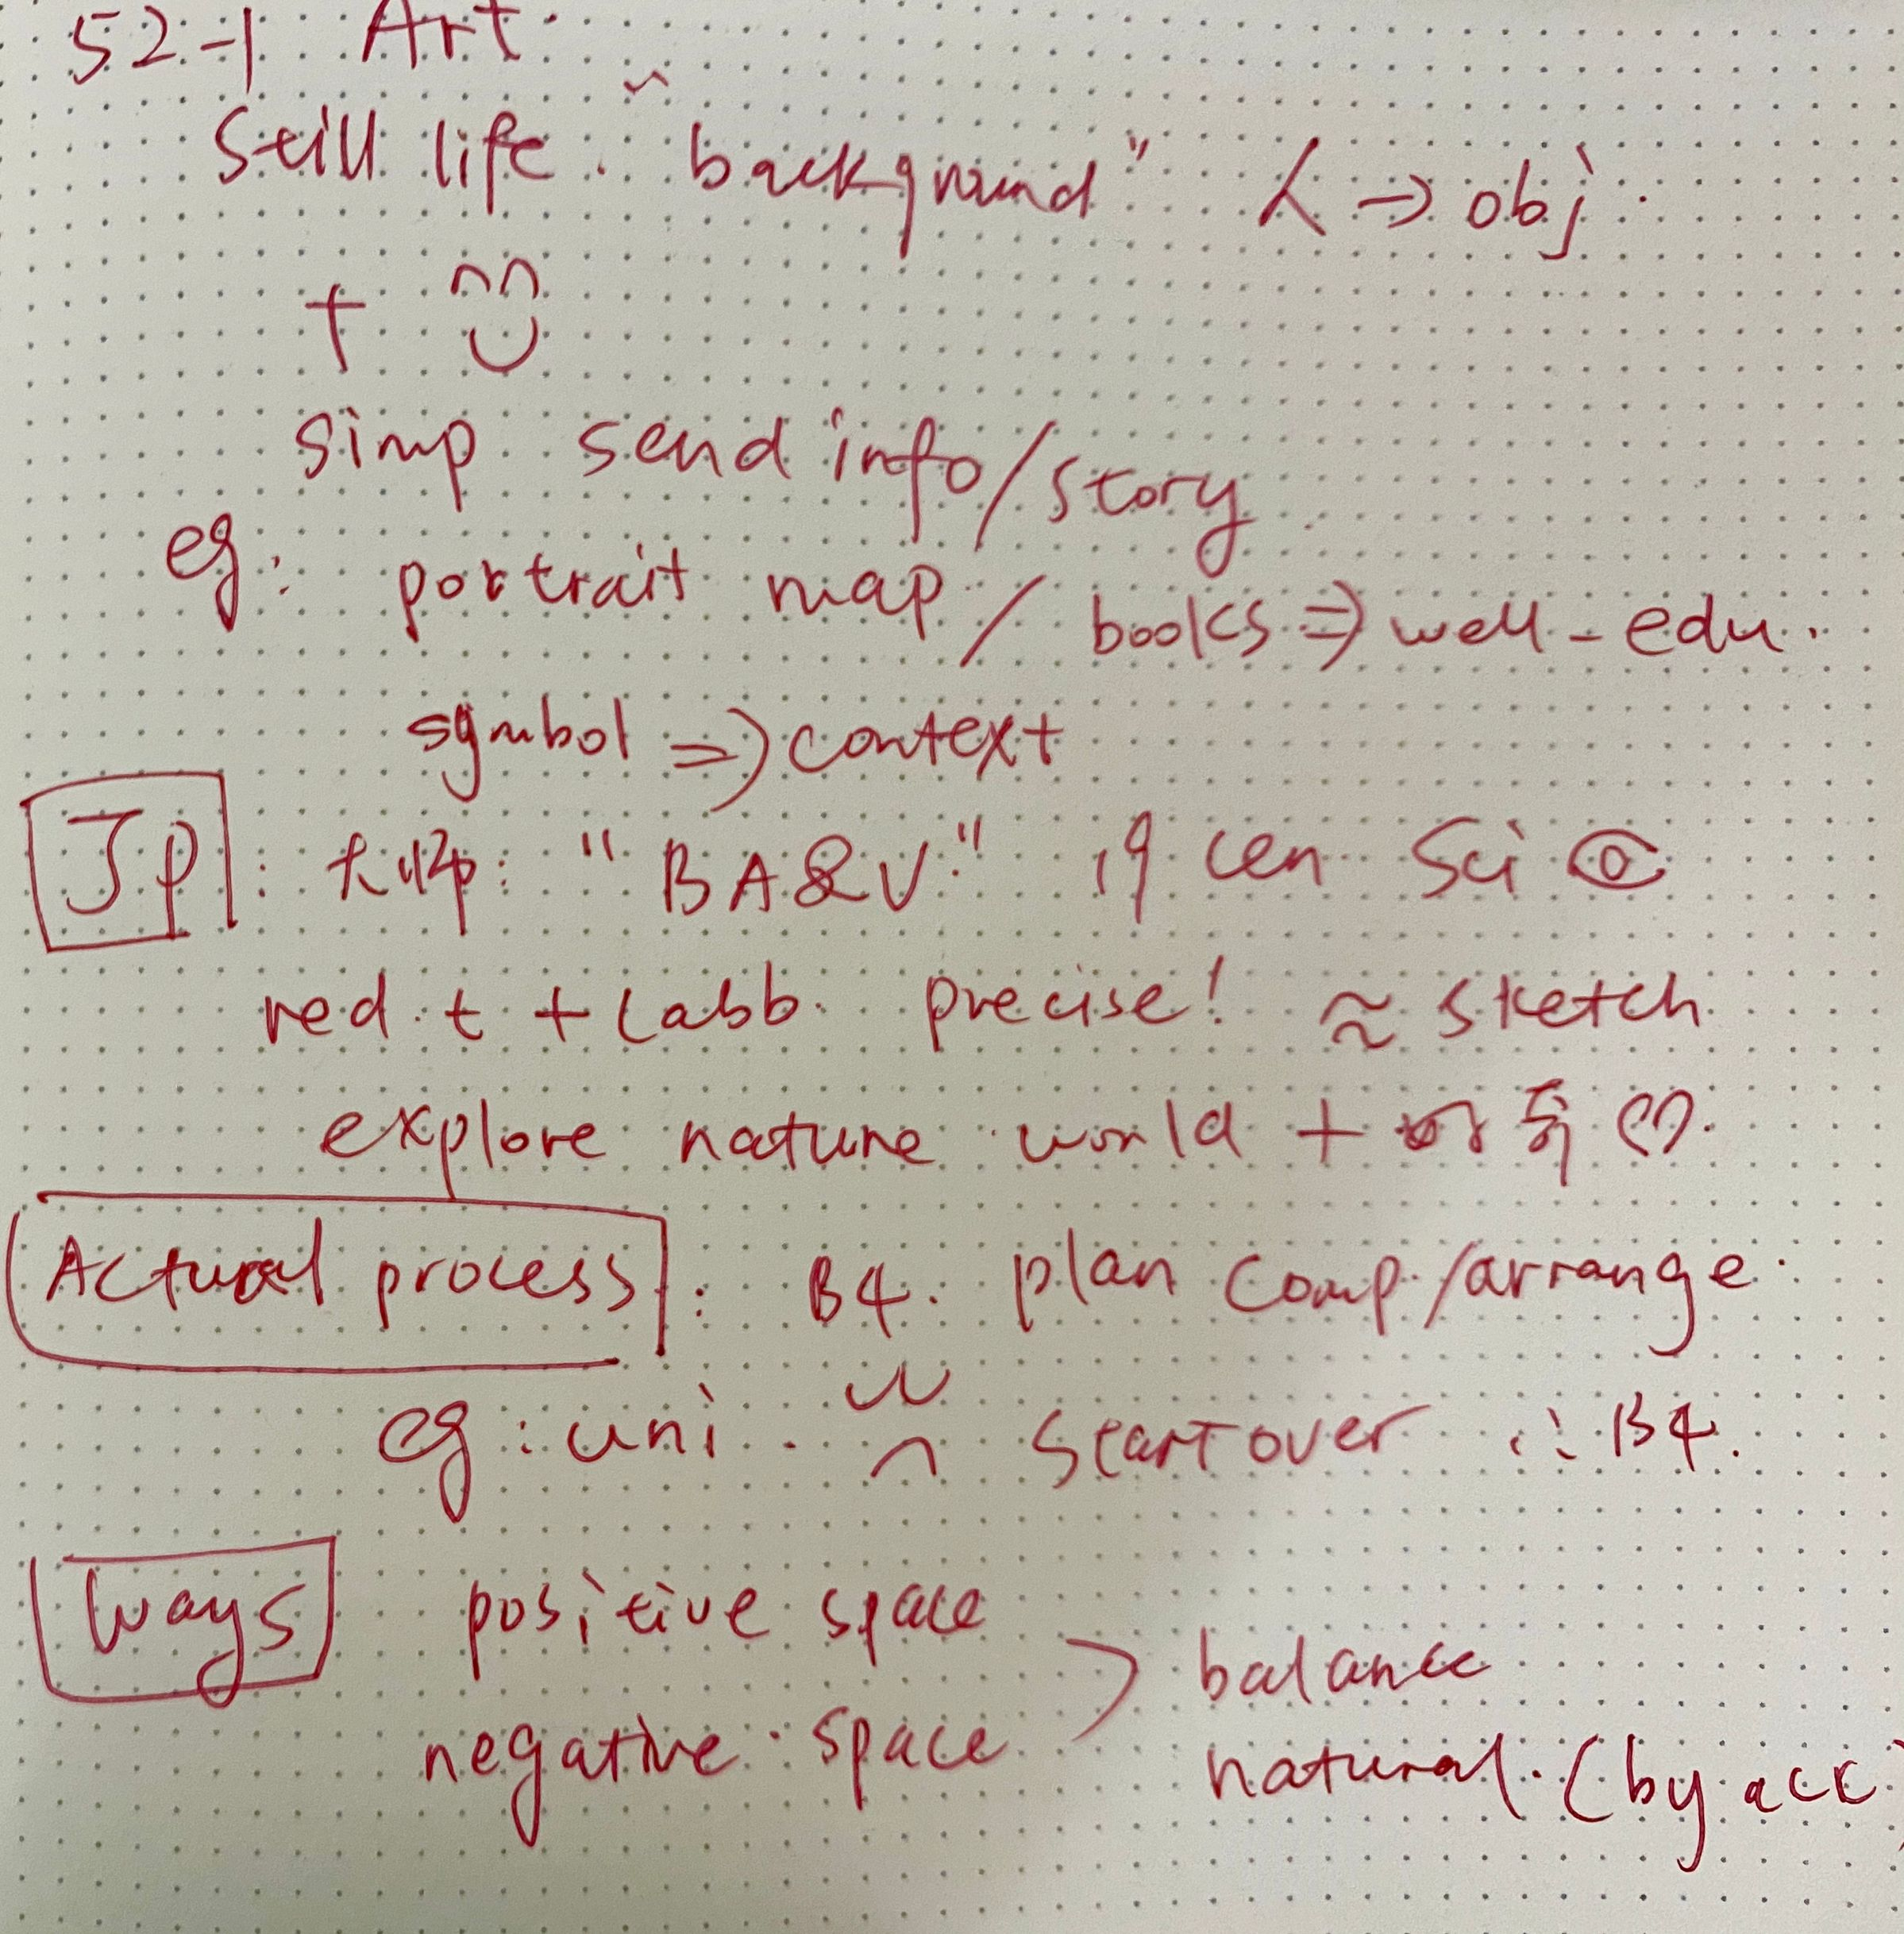 52-1 Art.
still life. "background" 人 → obj.
+
simp send info/story
eg: portrait map / books ⇒ well-edu.
symbol ⇒ context
Jp: "BA&V" 19 cen Sci
red. t + labb. precise! ≈ sketch
explore nature world + 好奇
Actural process: B4. plan comp./arrange.
eg: uni. start over ∴ B4.
Ways positive space
balance
negative space
natural. (by acc)